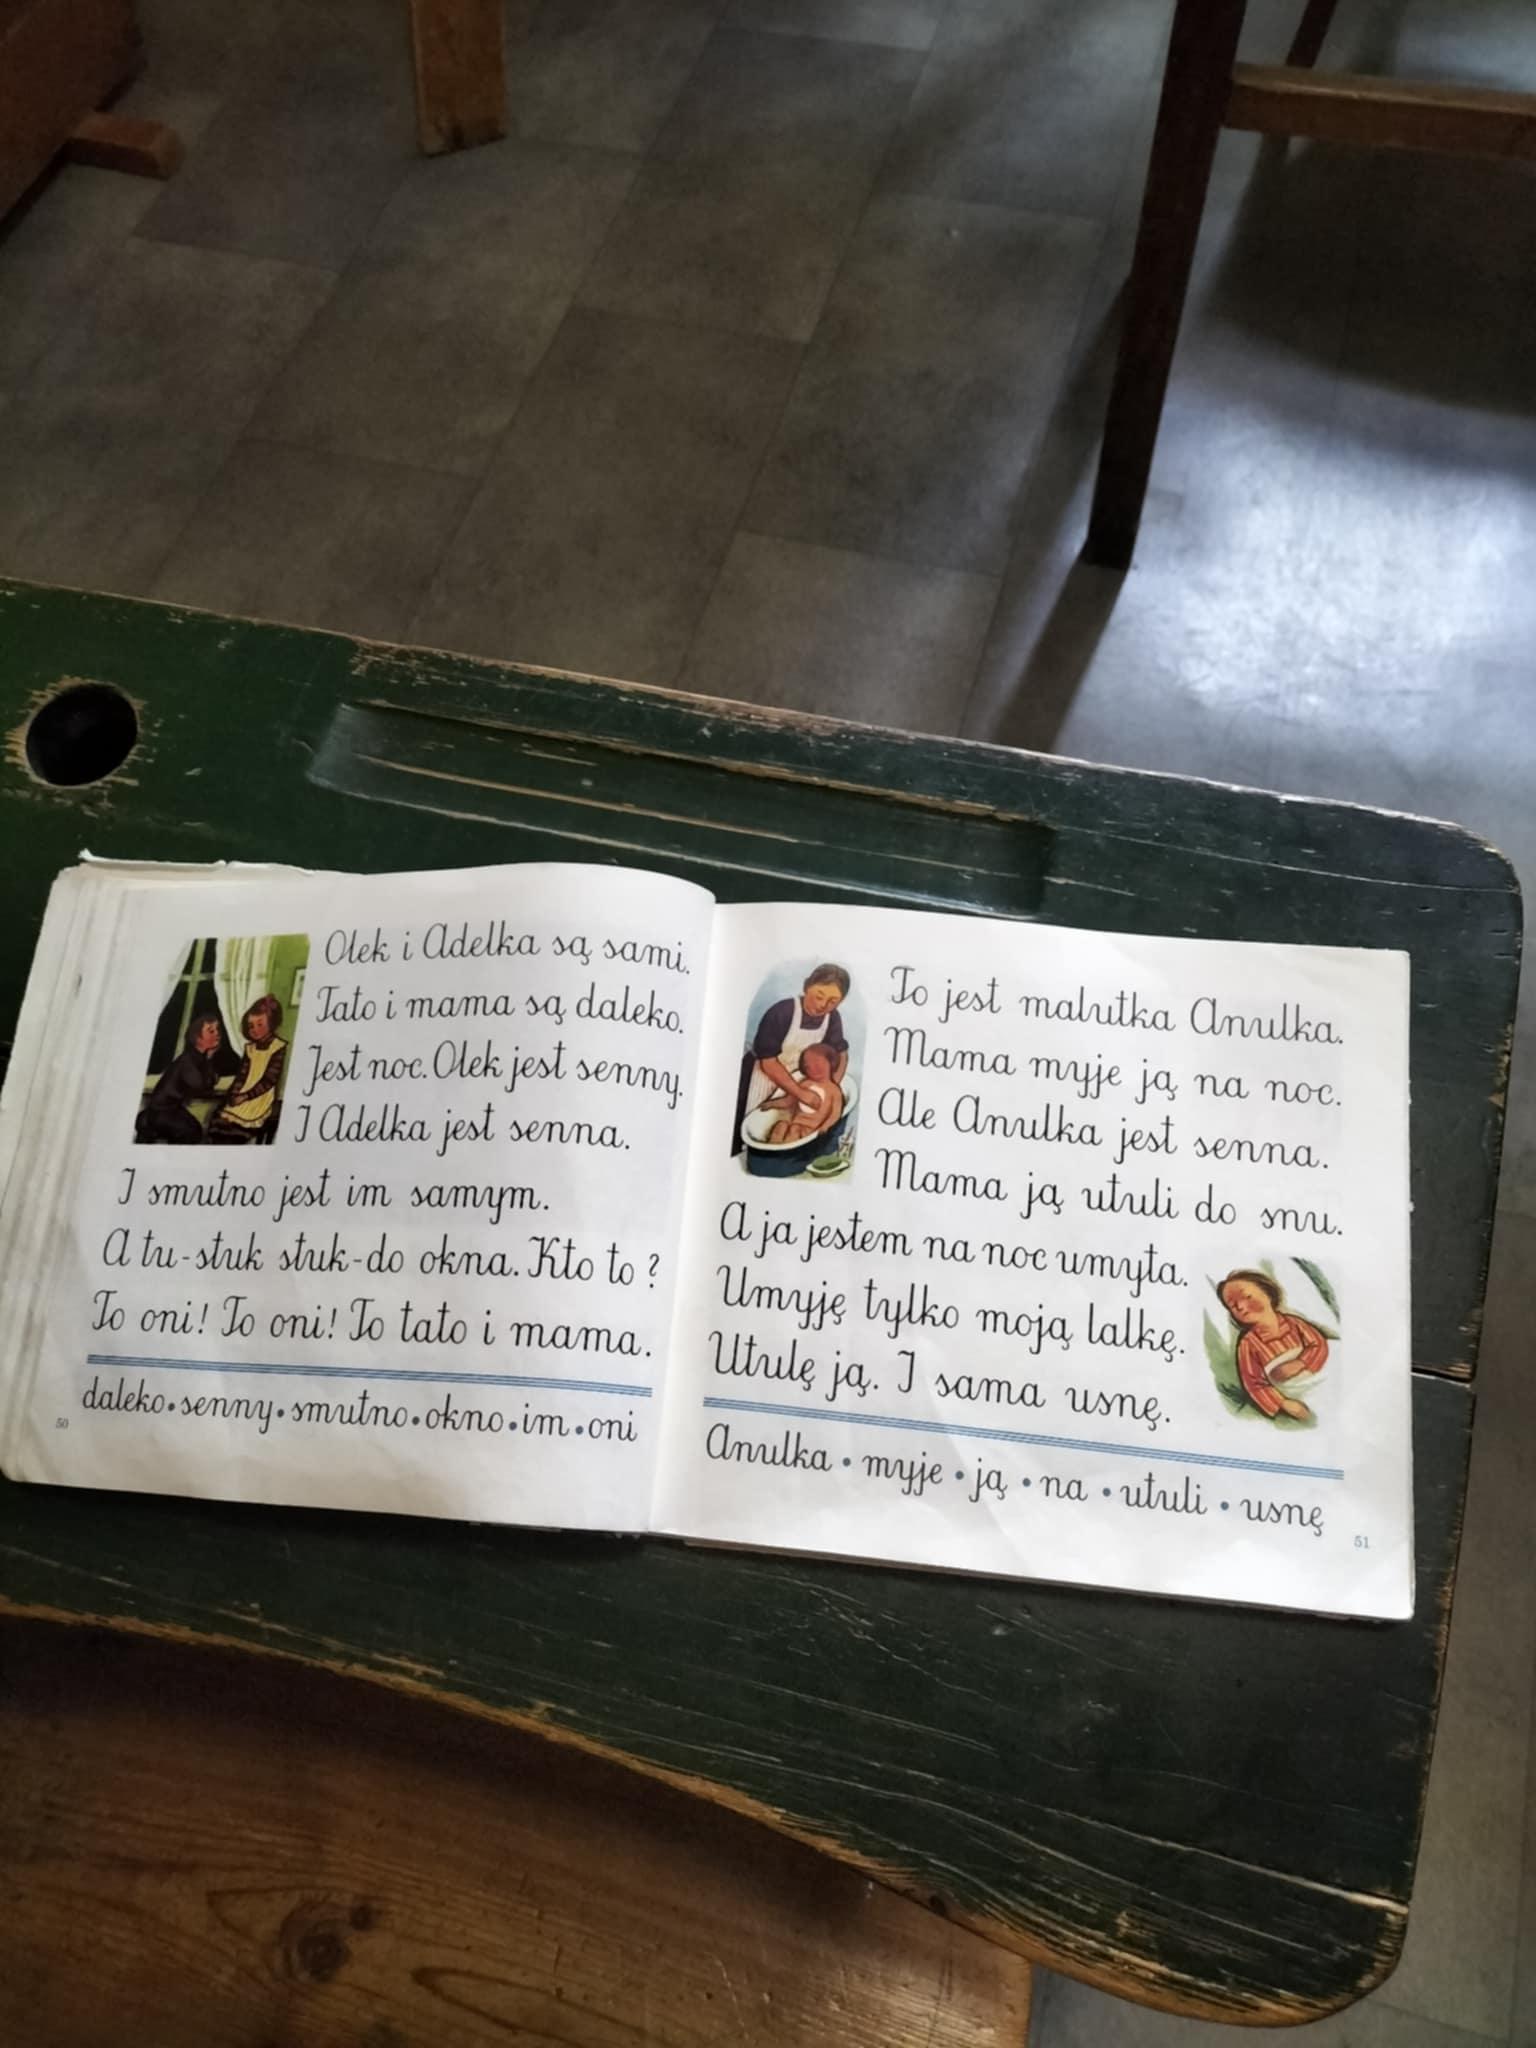 Olek i Adelka są sami.
Tato i mama są daleko.
Jest noc. Olek jest senny.
I Adelka jest senna.
I smutno jest im samym.
A tu-stuk stuk-do okna. Kto to?
To oni! To oni! To tato i mama.
daleko • senny • smutno • okno • im • oni
50
To jest malutka Anulka.
Mama myje ją na noc.
Ale Anulka jest senna.
Mama ją utuli do snu.
A ja jestem na noc umyta.
Umyję tylko moją lalkę.
Utulę ją. I sama usnę.
Anulka • myje • ją • na • utuli • usnę
51